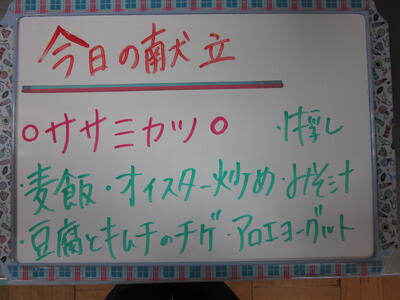 今日の献立
○ササミカツ○
・麦飯・オイスター炒め・みそ汁
・豆腐とキムチのチゲ・アロエヨーグルト